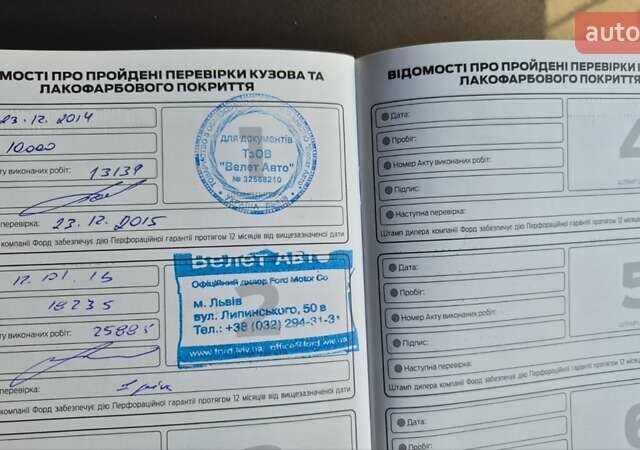 ОМОСТІ ПРО ПРОЙДЕНІ ПЕРЕВІРКИ КУЗОВА ТА
ЛАКОФАРБОВОГО ПОКРИТТЯ
23.12.2014
10.000
ту виконаних робіт: 13139
перевірка: 23.12.2015
компанії Форд забезпечує дію Перфораційної гарантії протягом 12 місяців від вищезазначеної дати
для документів
ТзОВ
"Велет Авто"
№ 32568210
Велет Авто
Офіційний дилер Ford Motor Co
м. Львів
вул. Липинського, 50 в
Тел.: +38 (032) 294-31-31
www.ford.lviv.ua office@ford.lviv.ua
18235
ту виконаних робіт: 25885
перевірка: 1 рік
компанії Форд забезпечує дію Перфораційної гарантії протягом 12 місяців від вищезазначеної дати
auto
ВІДОМОСТІ ПРО ПРОЙДЕНІ ПЕРЕВІРКИ К
ЛАКОФАРБОВОГО ПОКРИТТ
Дата:
Пробіг:
Номер Акту виконаних робіт:
Підпис:
Наступна перевірка:
Штамп дилера компанії Форд забезпечує дію Перфораційної гарантії протягом 12 місяців
4
Дата:
Пробіг:
Номер Акту виконаних робіт:
Підпис:
Наступна перевірка:
Штамп дилера компанії Форд забезпечує дію Перфораційної гарантії протягом 12 місяців
5
Дата:
Пробіг:
6